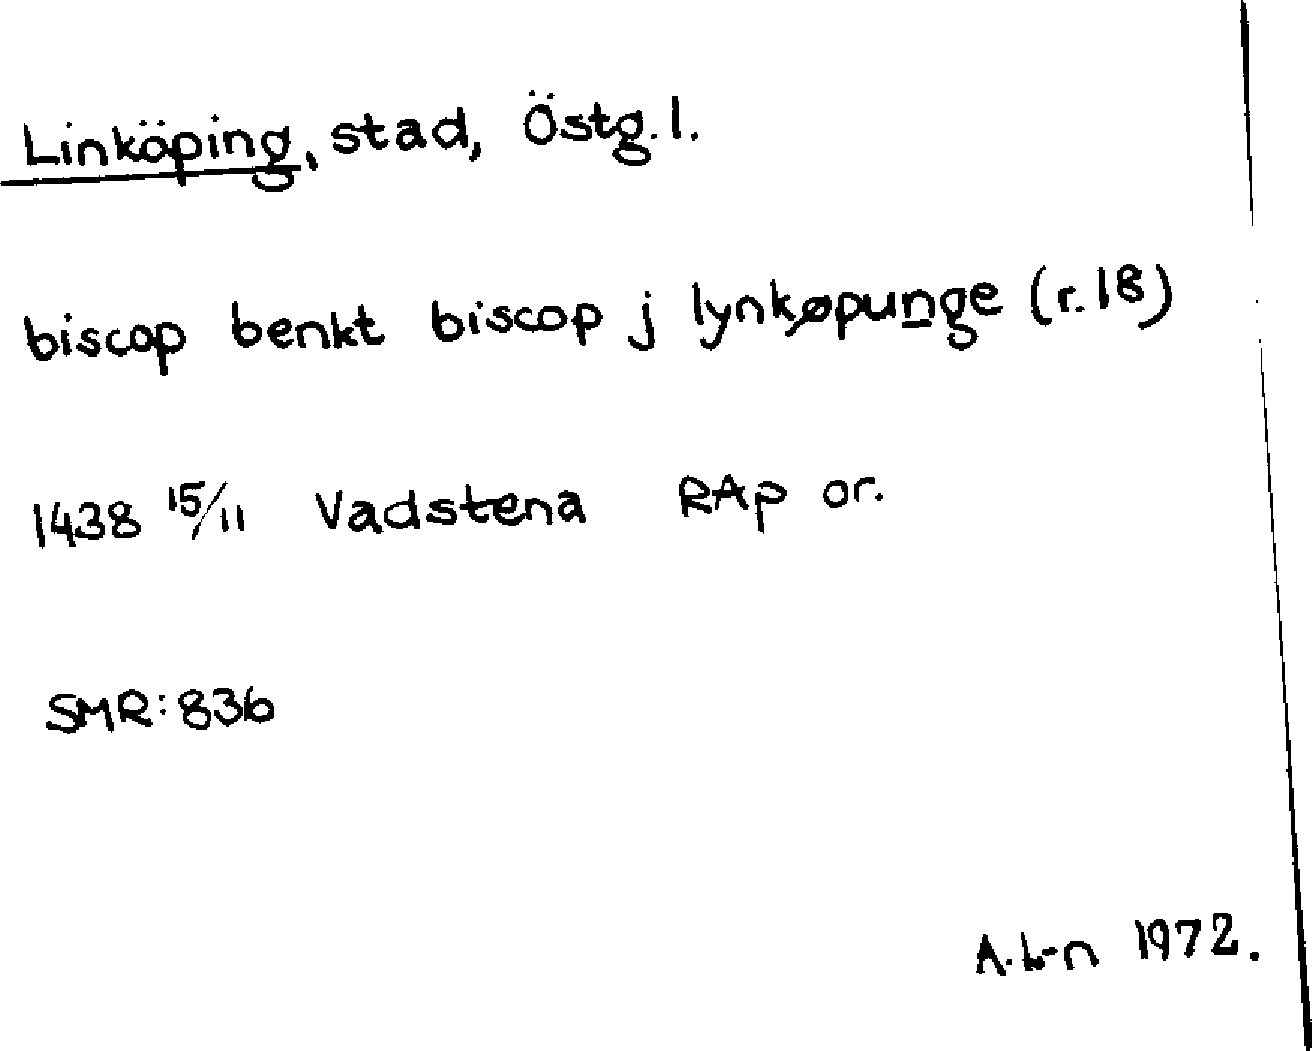 Linköping, stad, Östg.l.
biscop benkt biscop j lynkøpunge (r.18)
1438 15/11 Vadstena RAp or.
SMR:836
A.L-n 1972.